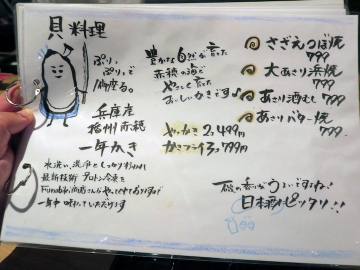 貝料理
ぷりっ
ぷりっで
個産る。
兵庫産
播州赤穂
一年かき
豊かな自然が育った
赤穂の海で
やっと育った
おいしいかきです♪
やきかき 2,499円
かきフライ3ヶ 799円
さざえつぼ焼 799
大あさり浜焼 799
あさり酒むし 799
あさりバター焼 799
水洗い、洗浄としっかり行われ
最新技術 プロトン冷凍を
一年中味わっていただけます
磯の香りがうまいですね!
日本酒ピッタリ!!